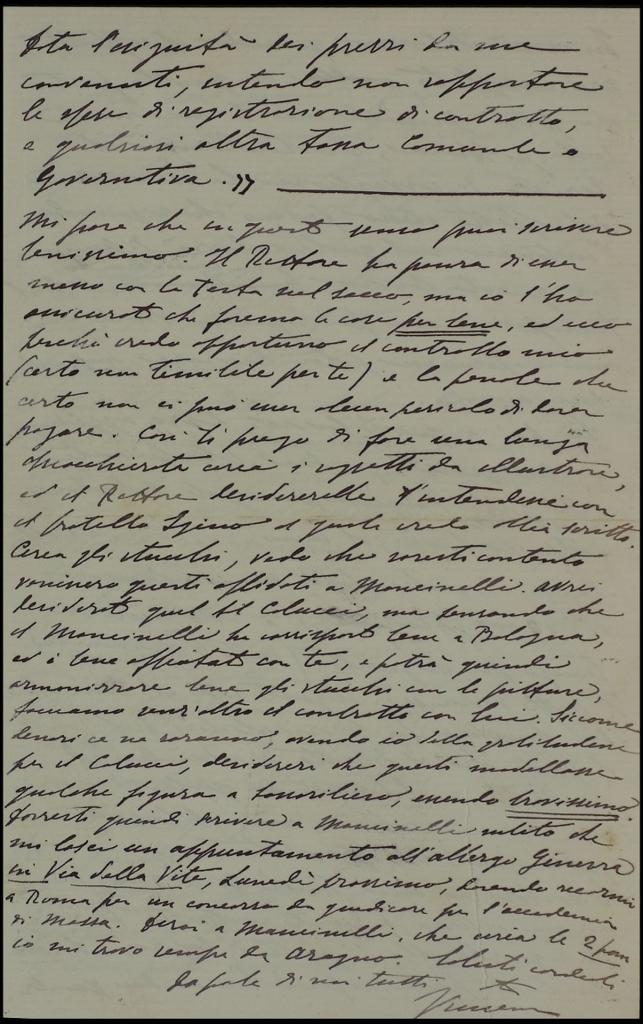 data l'esiguità dei prezzi da me
convenuti, intendo non sopportare
le spese di registrazione di contratto,
e qualsiasi altra tassa Comunale o
Governativa. »
Mi pare che in questo senso puoi scrivere
benissimo. Il Rettore ha paura di esser
messo con la testa nel sacco, ma io l'ho
assicurato che faremo le cose per bene, ed ecco
perchè credo opportuno il contratto mio
(certo non temibile per te) e la penale che
certo non ci può esser alcun pericolo di dover
pagare. Così ti prego di fare una lunga
chiacchierata circa i soggetti da illustrare,
ed il Rettore desidererebbe d'intendersi con
il fratello il quale credo abbia scritto.
Circa gli stucchi, vedo che saresti contento
venissero questi affidati a Mancinelli. Avrei
desiderato quel Colucci, ma pensando che
il Mancinelli ha corrisposto bene a Bologna,
ed è bene affiatato con te, e potrà quindi
armonizzare bene gli stucchi con le pitture,
facciamo senz'altro il contratto con lui. Siccome
denari ce ne saranno, avendo io della gratitudine
per il Colucci, desidererei che questi modellasse
qualche figura a bassorilievo, essendo bravissimo.
Dovresti quindi scrivere a Mancinelli subito che
mi lasci un appuntamento all'albergo Ginevra
in Via della Vite, Lunedì prossimo, dovendo recarmi
a Roma per un concorso da giudicare per l'accademia
di Massa. Dirai a Mancinelli, che circa le 2 pom
io mi trovo sempre da Aragno. Saluti cordiali
da parte di noi tutti